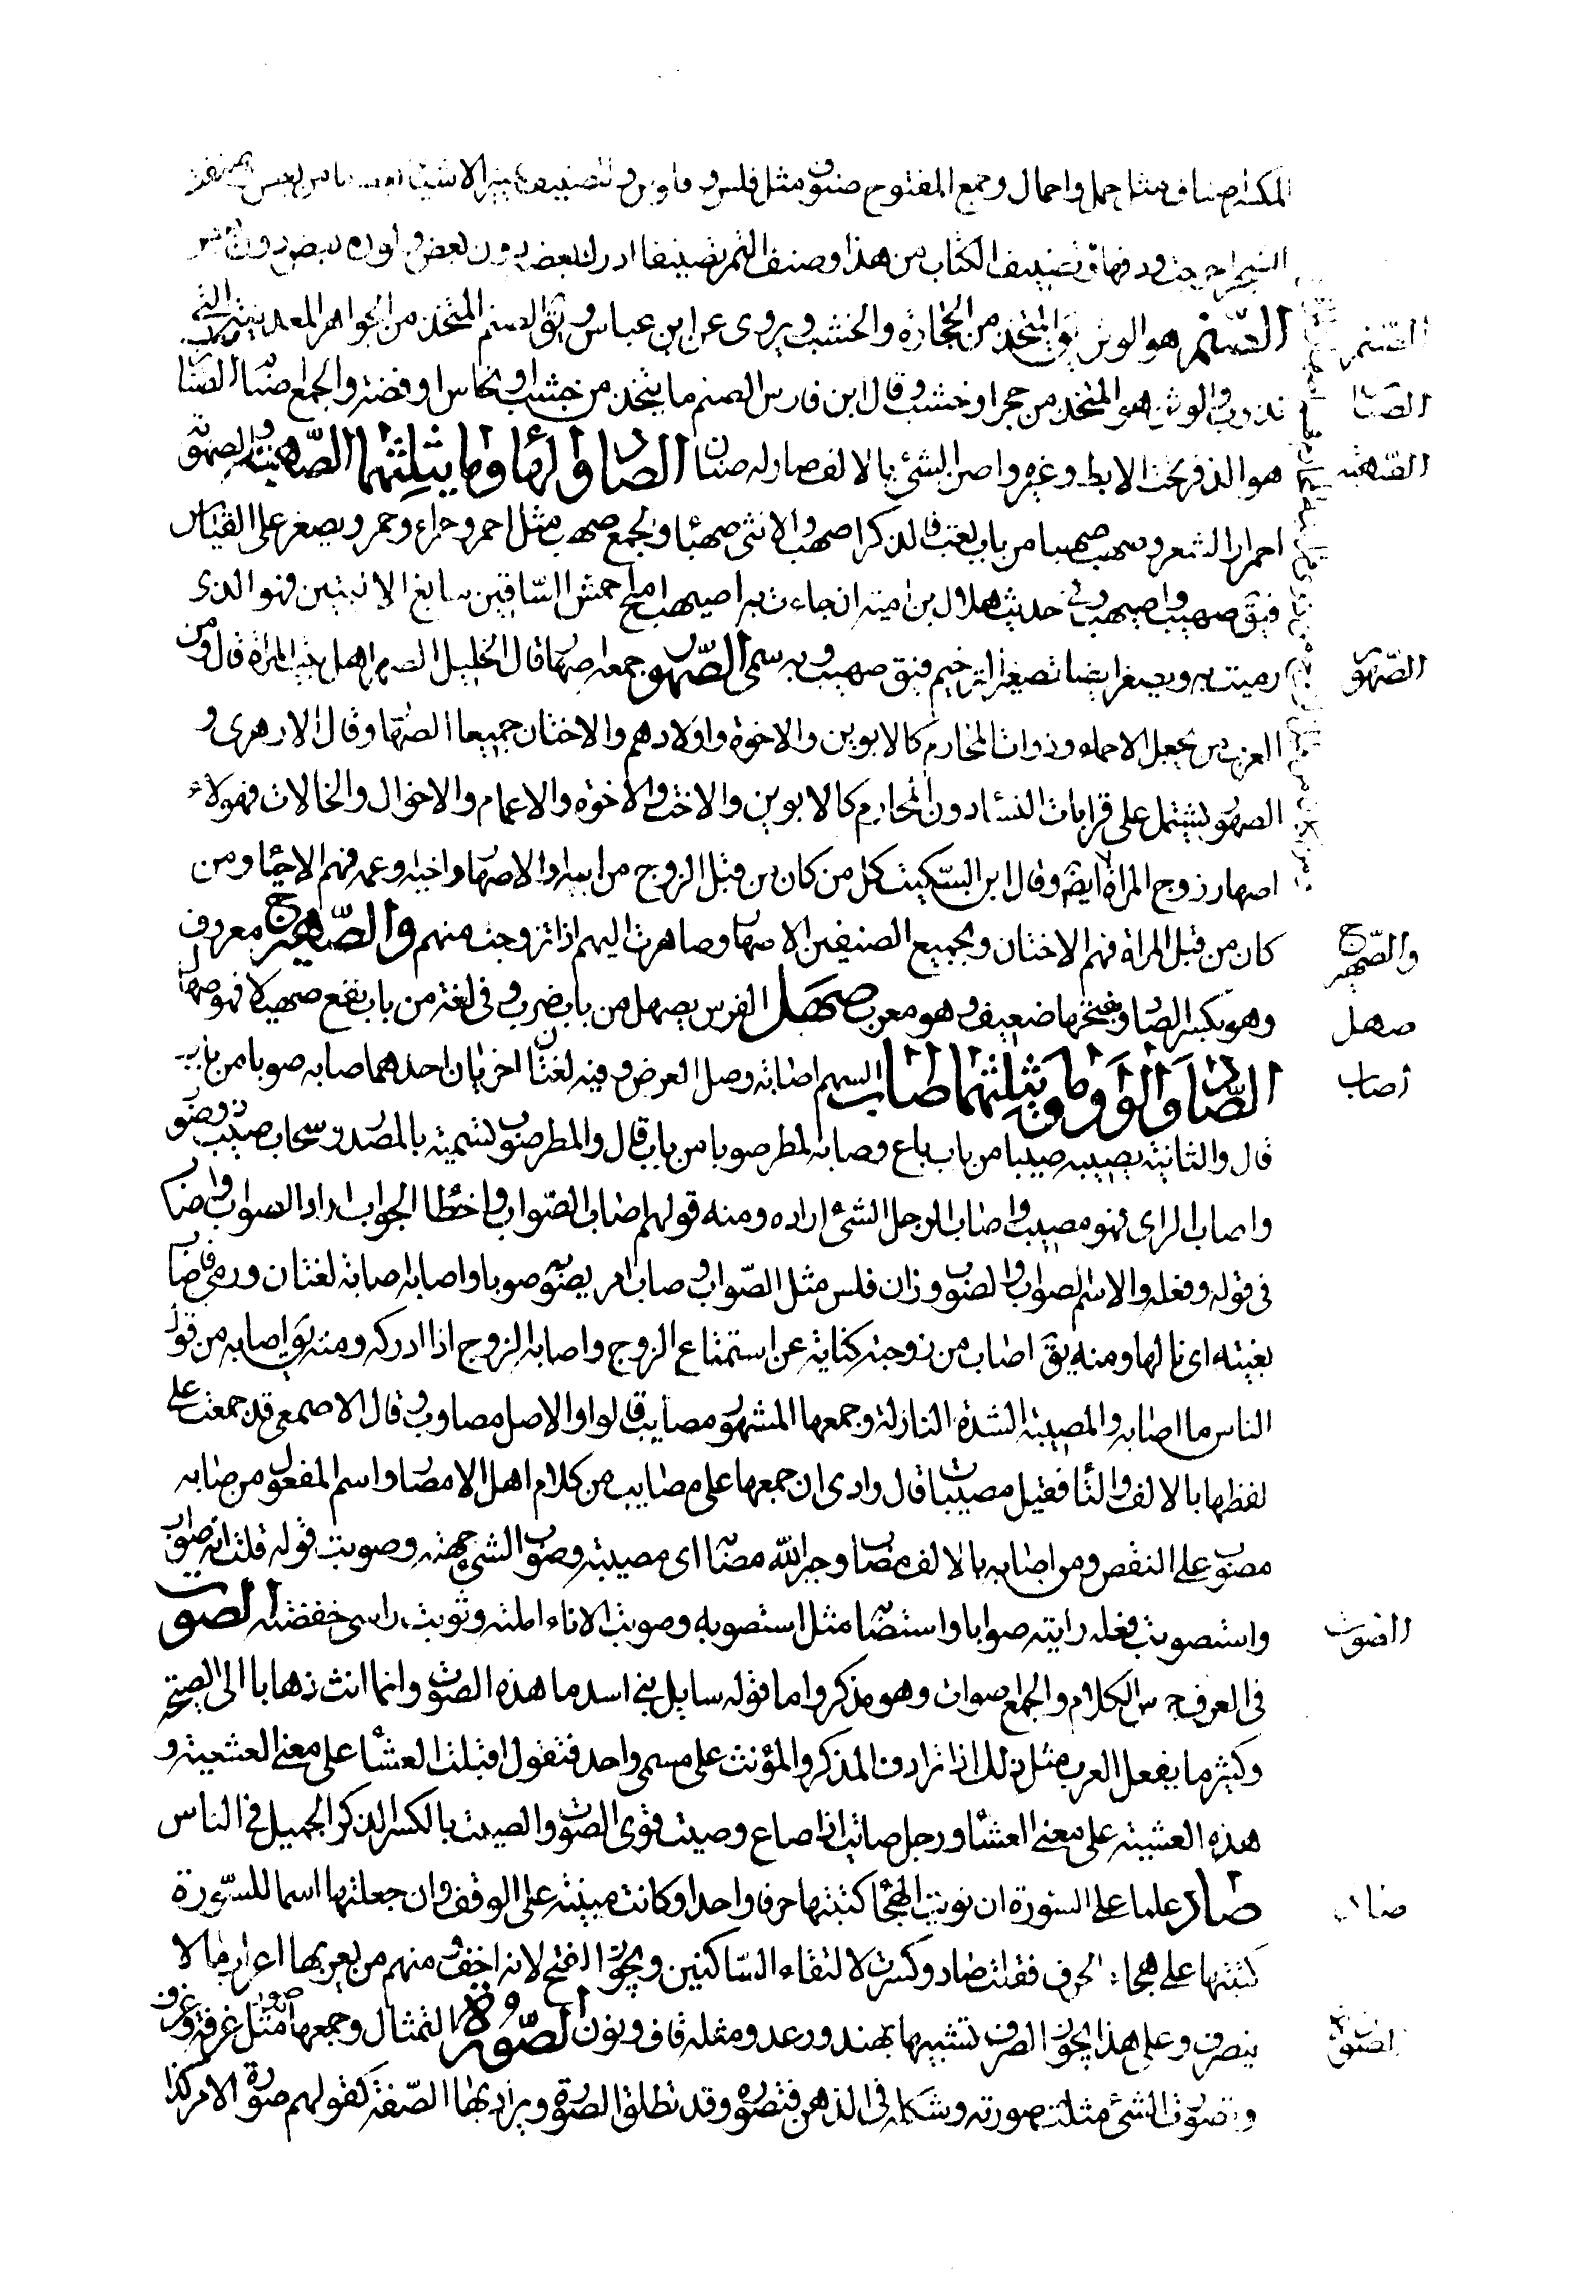 المكسور اصناف مثل حمل واحمال وجمع المفتوح صنوف مثل فلس وفلوس والتصنيف تمييز الاشياء بعضها من بعض وصنفت
الشجرة اخرجت ورقها وتصنيف الكتاب من هذا وصنف التمر تصنيفا ادرك بعضه دون بعض ولون بعضه دون بعض
الصَّنم هو الوثن المتخذ من الحجارة والخشب ويروى عن ابن عباس ويق الصنم المتخذ من الجواهر المعدنية التي
تذوب والوثن هو المتخذ من حجر او خشب وقال ابن فارس الصنم ما يتخذ من خشب او نحاس او فضة والجمع اصنام الصنان
هو الذفر تحت الابط وغيره واصن الشئ بالالف صار له صنان الصاد والهاء وما يثلثهما الصّهبة والصهوبة
احمرار الشعر وصهب صهبا من باب تعب فالذكر اصهب والانثى صهباء والجمع صهب مثل احمر وحمراء وحمر ويصغر على القياس
فيق صهيب واصيهب وفي حديث هلال بن امية ان جاءت به اصيهب احمش السّاقين سابغ الاليتين فهو الذى
رميت به ويصغر ايضا تصغير الترخيم فيق صهيب وبه سمى الصّهر جمعه اصهار قال الخليل الصهر اهل بيت المراة قال ومن
العرب من يجعل الاحماء وذوات المحارم كالابوين والاخوة واولادهم والاختان جميعا اصهارا وقال الازهرى و
الصهر يشتمل على قرابات النساء دون المحارم كالابوين والاخت والاخوة والاعمام والاخوال والخالات فهولاء
اصهار زوج المراة ايضا وقال ابن السّكيت كل من كان من قبل الزوج من ابيه واخيه وعمه فهم الاحماء ومن
كان من قبل المراة فهم الاختان ويجمع الصنفين الاصهار وصاهرت اليهم اذا تزوجت منهم والصّهريج معروف
وهو بكسر الصاد وفتحها ضعيف وهو معرب صهل الفرس يصهل من باب ضرب وفى لغة من باب نفع صهيلا فهو صهال
الصّاد والواو وما يثلثهما اصاب السهم اصابة وصل الغرض وفيه لغتان اخريان احدهما صابه صوبا من باب
قال والثانية يصيبه صيبا من باب باع وصابه المطر صوبا من باب قال والمطر صوب تسمية بالمصدر وسحاب صيّب وصوب
واصاب الراى فهو مصيب واصاب الرجل الشئ اراده ومنه قولهم اصاب الصّواب واخطا الجواب اراد الصواب واصاب
فى قوله وفعله والاسم الصواب والصوب وزان فلس مثل الصّواب وصاب امر يصوبه صوبا واصابه اصابة لغتان ورمى فاصاب
بغيته اى نالها ومنه يق اصاب من زوجته كناية عن استمتاع الزوج واصابه الزوج اذا ادركه ومنه يق اصابه من قول
الناس ما اصابه والمصيبة الشدة النازلة وجمعها المشهور مصايب قالوا والاصل مصاوب وقال الاصمعى قد جمعت على
لفظها بالالف والتاء فقيل مصيبات قال وارى ان جمعها على مصايب من كلام اهل الامصار واسم المفعول من صابه
مصوب على النقص ومن اصابه بالالف مصاب وجبر الله مصابه اى مصيبته وصوب الشئ جهته وصوبت قوله قلت انه صواب
واستصوبت فعله رايته صوابا واستصاب مثل استصوبه وصوبت الاناء املته وصوبت راسى خفضته الصوت
فى العرف جرس الكلام والجمع اصوات وهو مذكر واما قوله سايل بنى اسد ما هذه الصوت وانما انث ذهابا الى الصيحة
وكثير ما يفعل العرب مثل ذلك اذا ترادف المذكر والمؤنث على مسمى واحد فتقول اقبلت العشاء على معنى العشية و
هذه العشية على معنى العشاء ورجل صائت اذا صاح وصيت قوى الصوت والصيت بالكسر الذكر الجميل في الناس
صاد علما على السورة ان نويت الهجاء كتبتها حرفا واحدا وكانت مبنية على الوقف وان جعلتها اسما للسّورة
كتبتها على هجاء الحرف فقلت صاد وكسرت لالتقاء السّاكنين ويجوز الفتح لانه اخف ومنهم من يعربها اعراب ما لا
ينصرف وعلى هذا يجوز الصرف تشبيها بهند ودعد ومثله قاف ونون الصّورة التمثال وجمعها صور مثل غرفة وغرف
وتصورت الشئ مثلت صورته وشكله فى الذهن فتصور وقد تطلق الصورة ويراد بها الصّفة كقولهم صورة الامر كذا
الصّنم
الصنان
الصّهبة
الصّهر
والصّهريج
صهل
اصاب
الصوت
صاد
الصورة